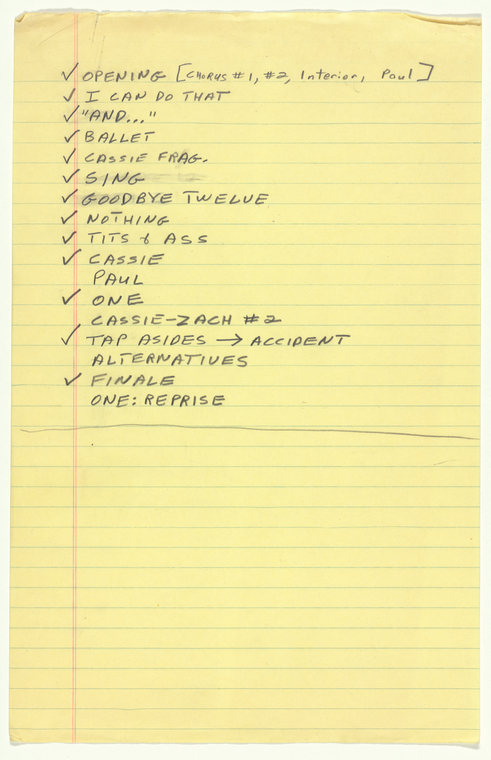 ✓ OPENING [CHORUS #1, #2, Interior, Paul]
✓ I CAN DO THAT
✓ "AND..."
✓ BALLET
✓ CASSIE FRAG.
✓ SING
✓ GOODBYE TWELVE
✓ NOTHING
✓ TITS & ASS
✓ CASSIE
PAUL
✓ ONE
CASSIE-ZACH #2
✓ TAP ASIDES → ACCIDENT
ALTERNATIVES
✓ FINALE
ONE: REPRISE